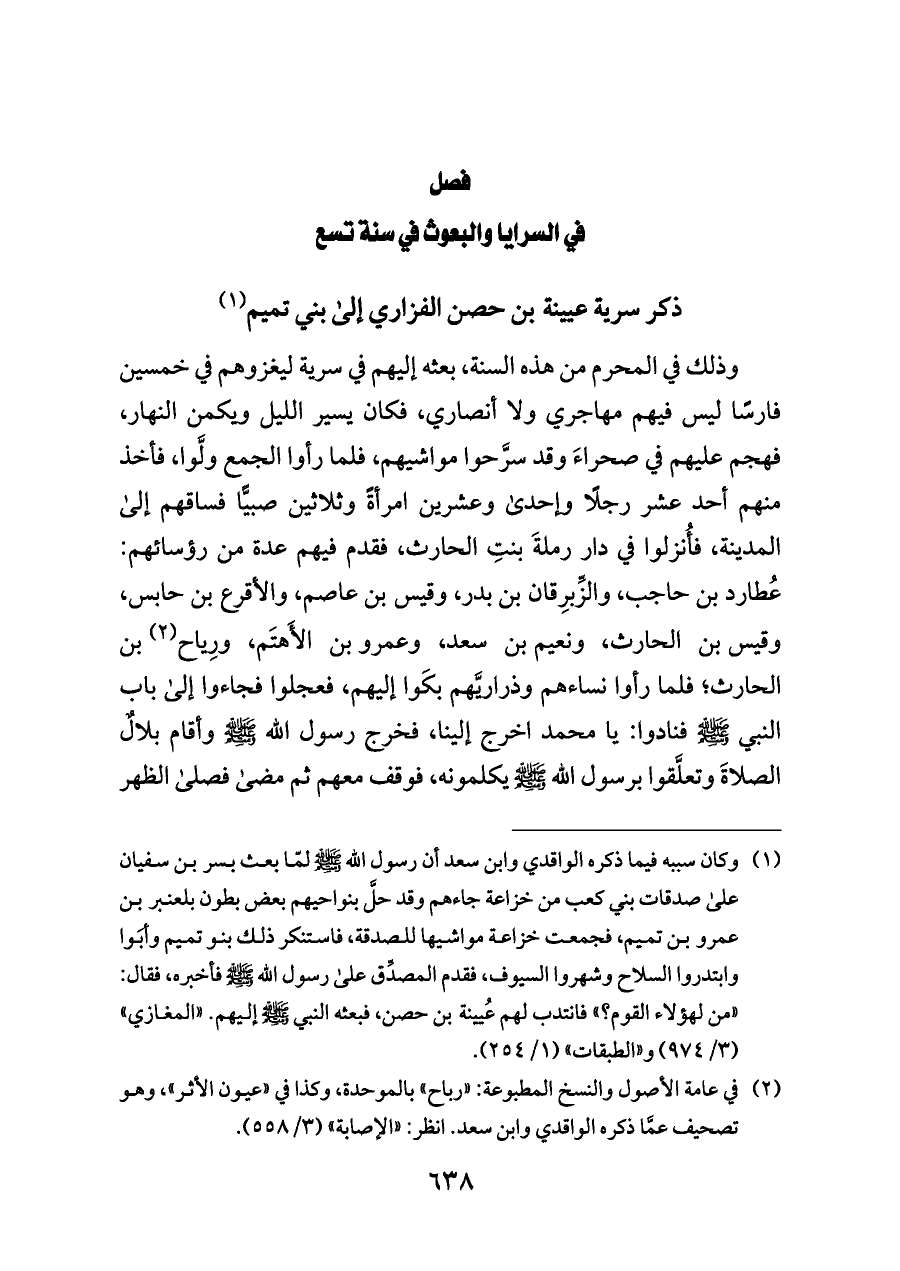 فصل
في السرايا والبعوث في سنة تسع
ذكر سرية عيينة بن حصن الفزاري إلىٰ بني تميم(١)
وذلك في المحرم من هذه السنة، بعثه إليهم في سرية ليغزوهم في خمسين
فارسًا ليس فيهم مهاجري ولا أنصاري، فكان يسير الليل ويكمن النهار،
فهجم عليهم في صحراءَ وقد سرَّحوا مواشيهم، فلما رأوا الجمع ولَّوا، فأخذ
منهم أحد عشر رجلًا وإحدىٰ وعشرين امرأةً وثلاثين صبيًّا فساقهم إلىٰ
المدينة، فأُنزلوا في دار رملةَ بنتِ الحارث، فقدم فيهم عدة من رؤسائهم:
عُطارد بن حاجب، والزِّبرِقان بن بدر، وقيس بن عاصم، والأقرع بن حابس،
وقيس بن الحارث، ونعيم بن سعد، وعمرو بن الأَهتَم، ورِياح(٢) بن
الحارث؛ فلما رأوا نساءهم وذراريَّهم بكَوا إليهم، فعجلوا فجاءوا إلىٰ باب
النبي ﷺ فنادوا: يا محمد اخرج إلينا، فخرج رسول الله ﷺ وأقام بلالٌ
الصلاةَ وتعلَّقوا برسول الله ﷺ يكلمونه، فوقف معهم ثم مضىٰ فصلىٰ الظهر
(١) وكان سببه فيما ذكره الواقدي وابن سعد أن رسول الله ﷺ لمّا بعث بسر بن سفيان
علىٰ صدقات بني كعب من خزاعة جاءهم وقد حلَّ بنواحيهم بعض بطون بلعنبر بن
عمرو بن تميم، فجمعت خزاعة مواشيها للصدقة، فاستنكر ذلك بنو تميم وأبَوا
وابتدروا السلاح وشهروا السيوف، فقدم المصدِّق علىٰ رسول الله ﷺ فأخبره، فقال:
«من لهؤلاء القوم؟» فانتدب لهم عُيينة بن حصن، فبعثه النبي ﷺ إليهم. «المغازي»
(٣/ ٩٧٤) و«الطبقات» (١/ ٢٥٤).
(٢) في عامة الأصول والنسخ المطبوعة: «رباح» بالموحدة، وكذا في «عيون الأثر»، وهو
تصحيف عمَّا ذكره الواقدي وابن سعد. انظر: «الإصابة» (٣/ ٥٥٨).
٦٣٨